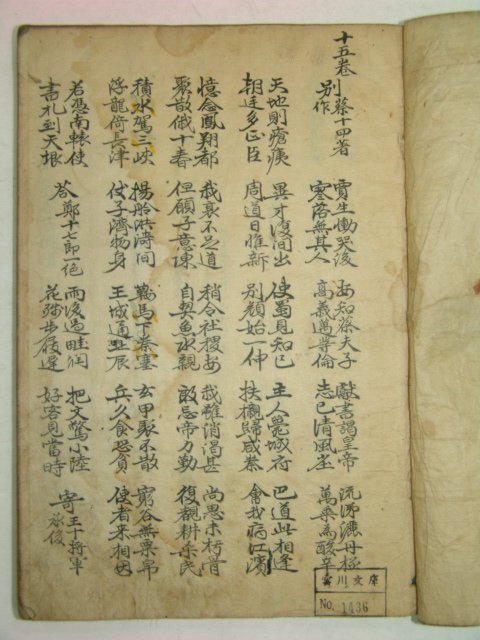 十五卷
別蔡十四著作
賈生慟哭後
寥落無其人
安知蔡夫子
高義邁等倫
獻書謁皇帝
志已清風塵
流涕灑丹極
萬乘為酸辛
天地則瘡痍
朝廷多正臣
異才復間出
周道日惟新
使蜀見知己
別顏始一伸
主人薨城府
扶櫬歸咸秦
巴道此相逢
會我病江濱
憶念鳳翔都
聚散俄十春
我衰不足道
但願子意陳
稍令社稷安
自契魚水親
我雖消渴甚
敢忘帝力勤
尚思未朽骨
復覩耕桑民
積水駕三峽
浮龍倚長津
揚舲洪濤間
仗子濟物身
鞍馬下秦塞
王城通北辰
玄甲聚不散
兵久食恐貧
窮谷無粟帛
使者來相因
若憑南轅使
書札到天垠
答鄭十七郎一絕
雨後過畦潤
花殘步屐遲
把文驚小陸
好客見當時
寄王十將軍承俊
川文庫
No. 1436